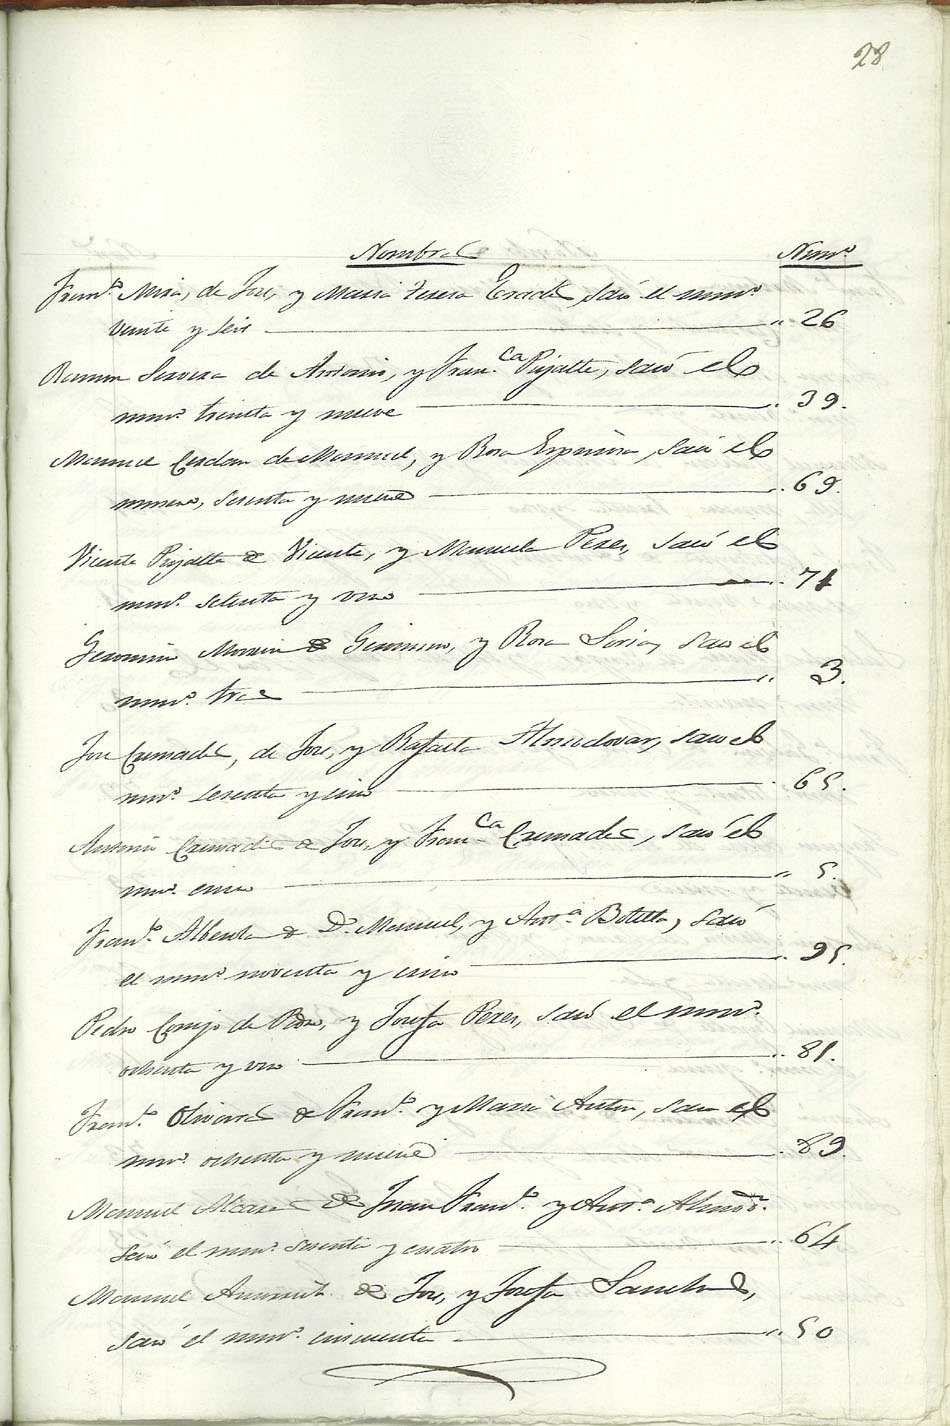 28
Nombres Num.º
Fran.co Mira, de Jose, y Maria Teresa saco el num.º
veinte y seis 26
Ramon Servera de Antonio, y Fran.ca Pujalte, sacó el
num.º treinta y nueve 39.
Manuel Cerdan de Manuel, y Rosa Espinosa, sacó el
numero, sesenta y nueve 69.
Vicente Pujalte de Vicente, y Manuela Perez, sacó el
num.º setenta y uno 71
Geronimo de Geronimo, y Rosa Soria, saco el
num.º tres 3.
Jose Cremades, de Jose, y Rafaela Almodovar, saco el
num.º sesenta y cinco 65.
Antonio Cremades de Jose, y Fran.ca Cremades, sacó el
num.º cinco 5.
Fran.co Albentа de D.n Manuel, y Ant.a Botella, sacó
el num.º noventa y cinco 95.
Pedro de Pedro, y Josefa Perez, sacó el num.º
ochenta y uno 81.
Fran.co Olivares de Fran.co y Maria Anton, saco el
num.º ochenta y nueve 89.
Manuel de Juan Fran.co y Ant.a
Sacó el num.º sesenta y cuatro 64
Manuel de Jose, y Josefa Sanchez,
sacó el num.º cincuenta 50